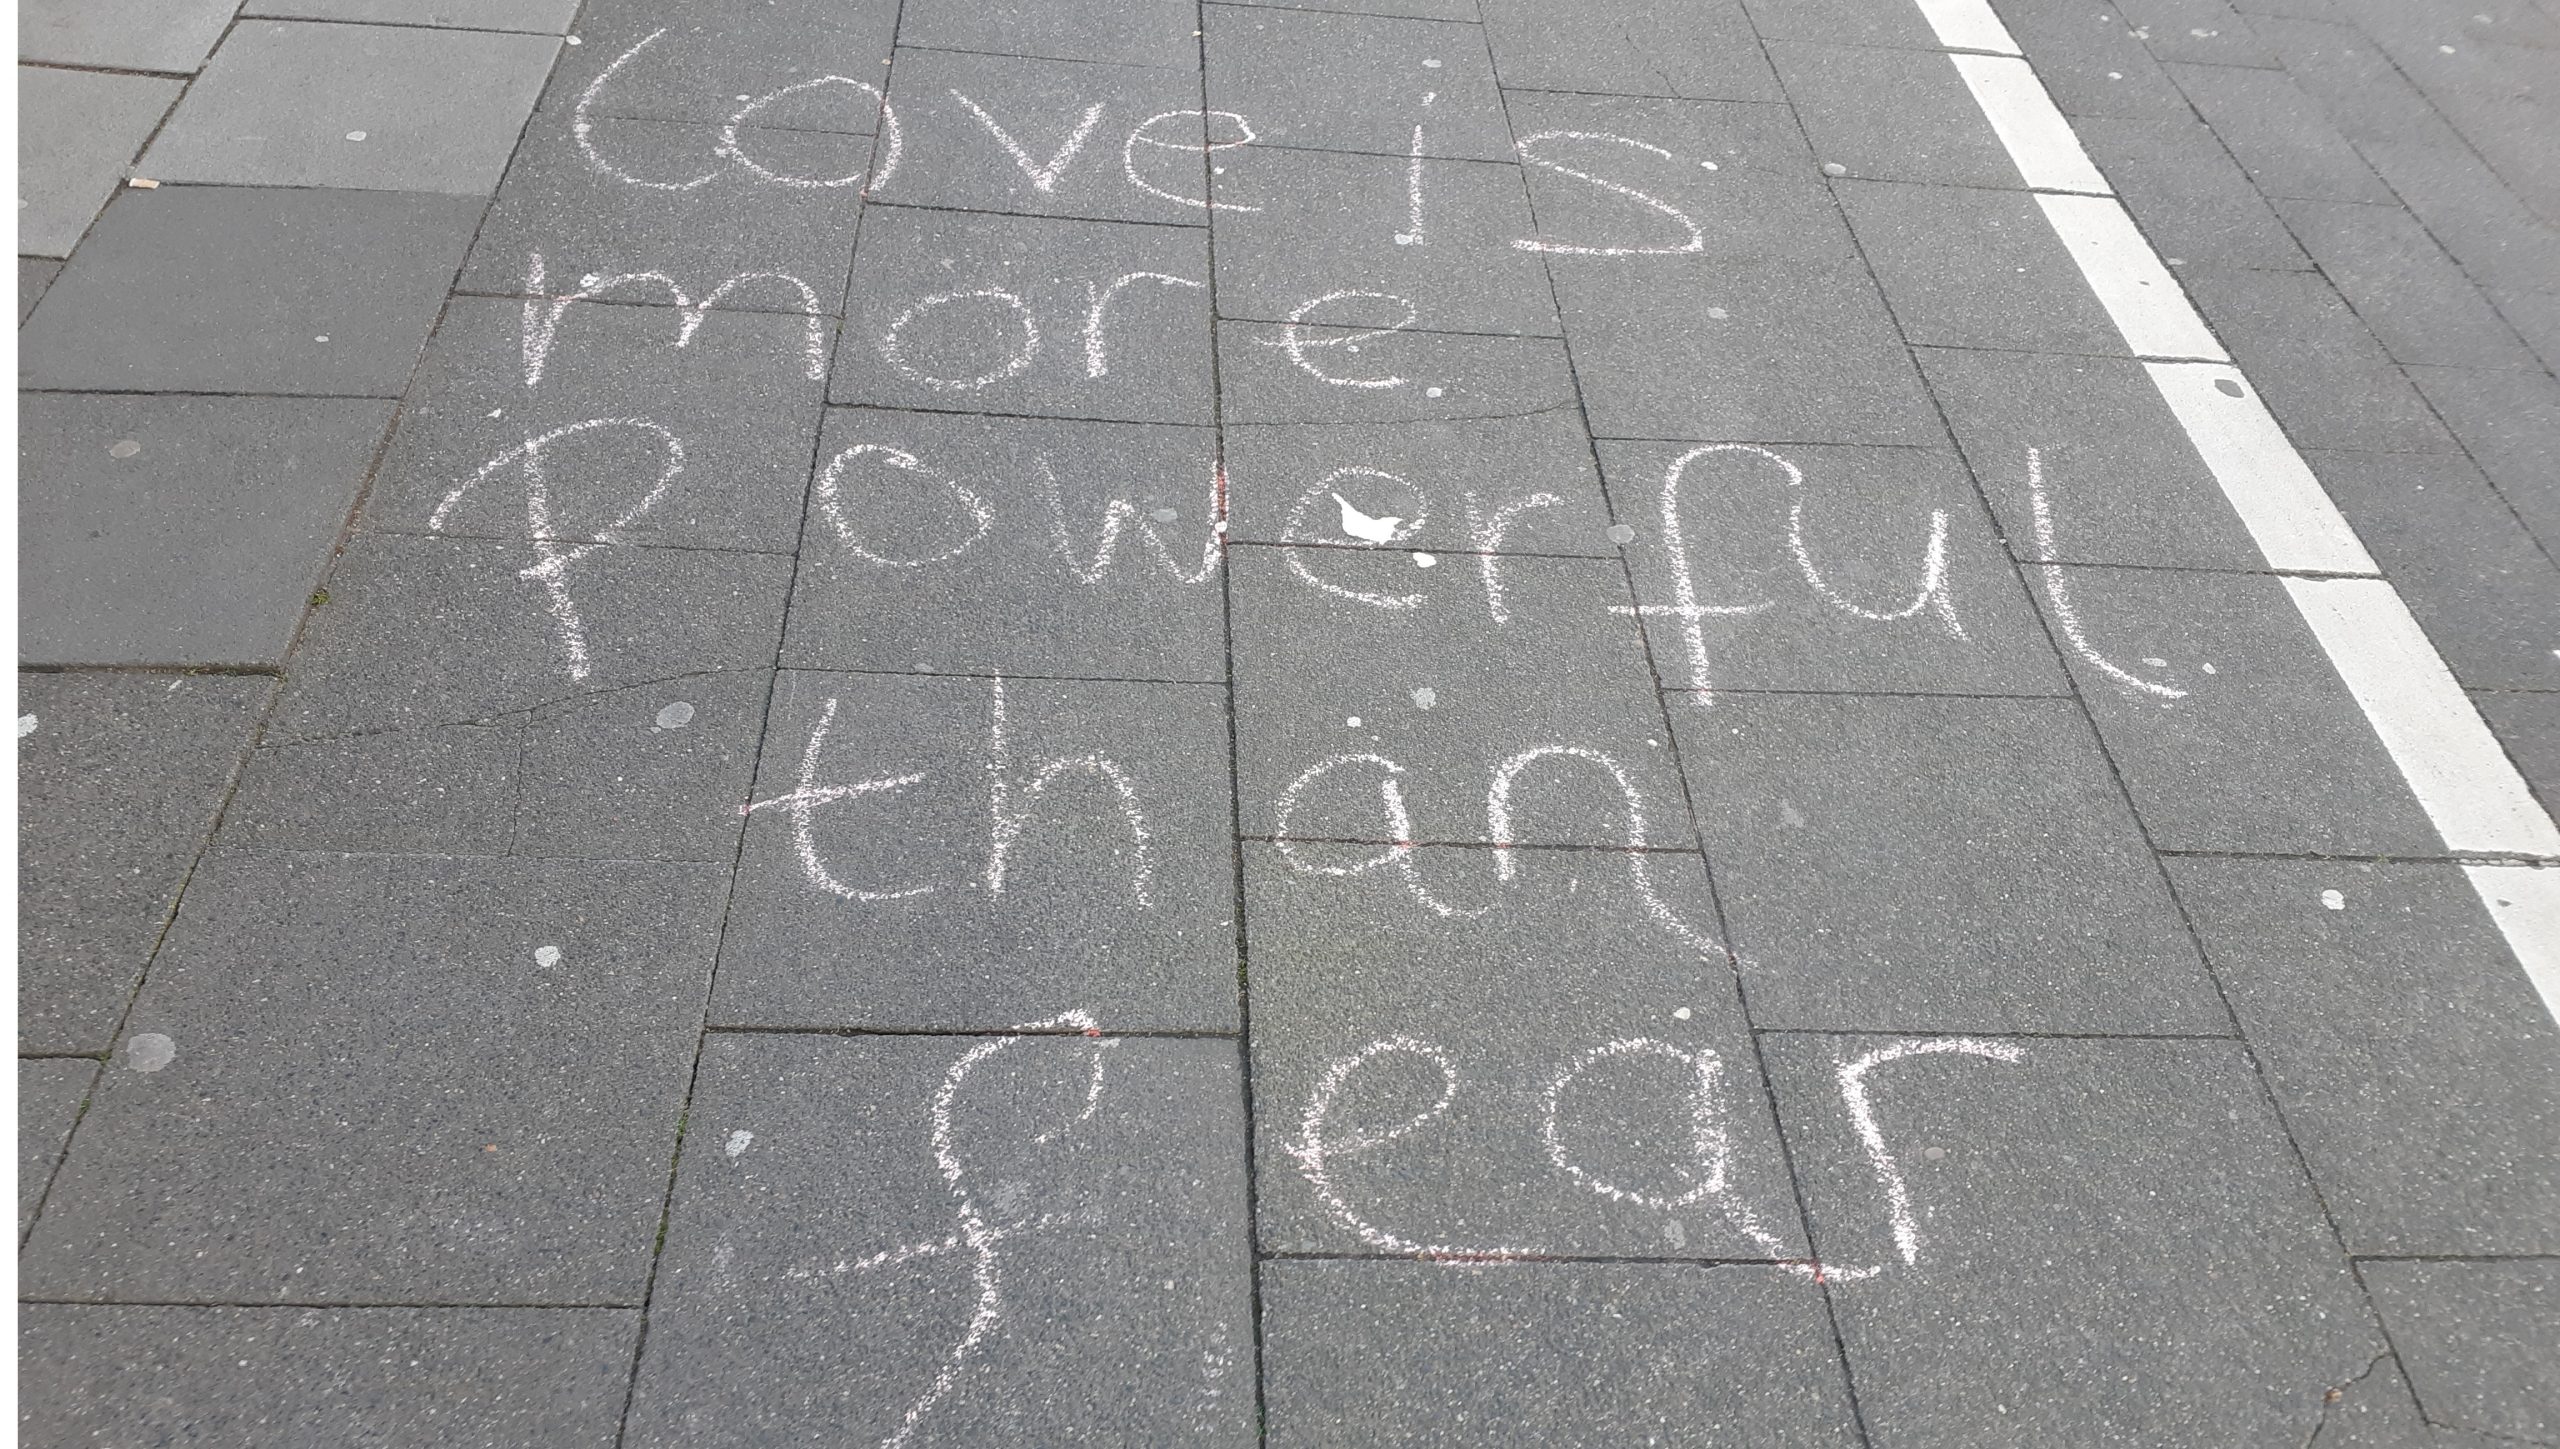 Love is
more
Powerful
than
fear